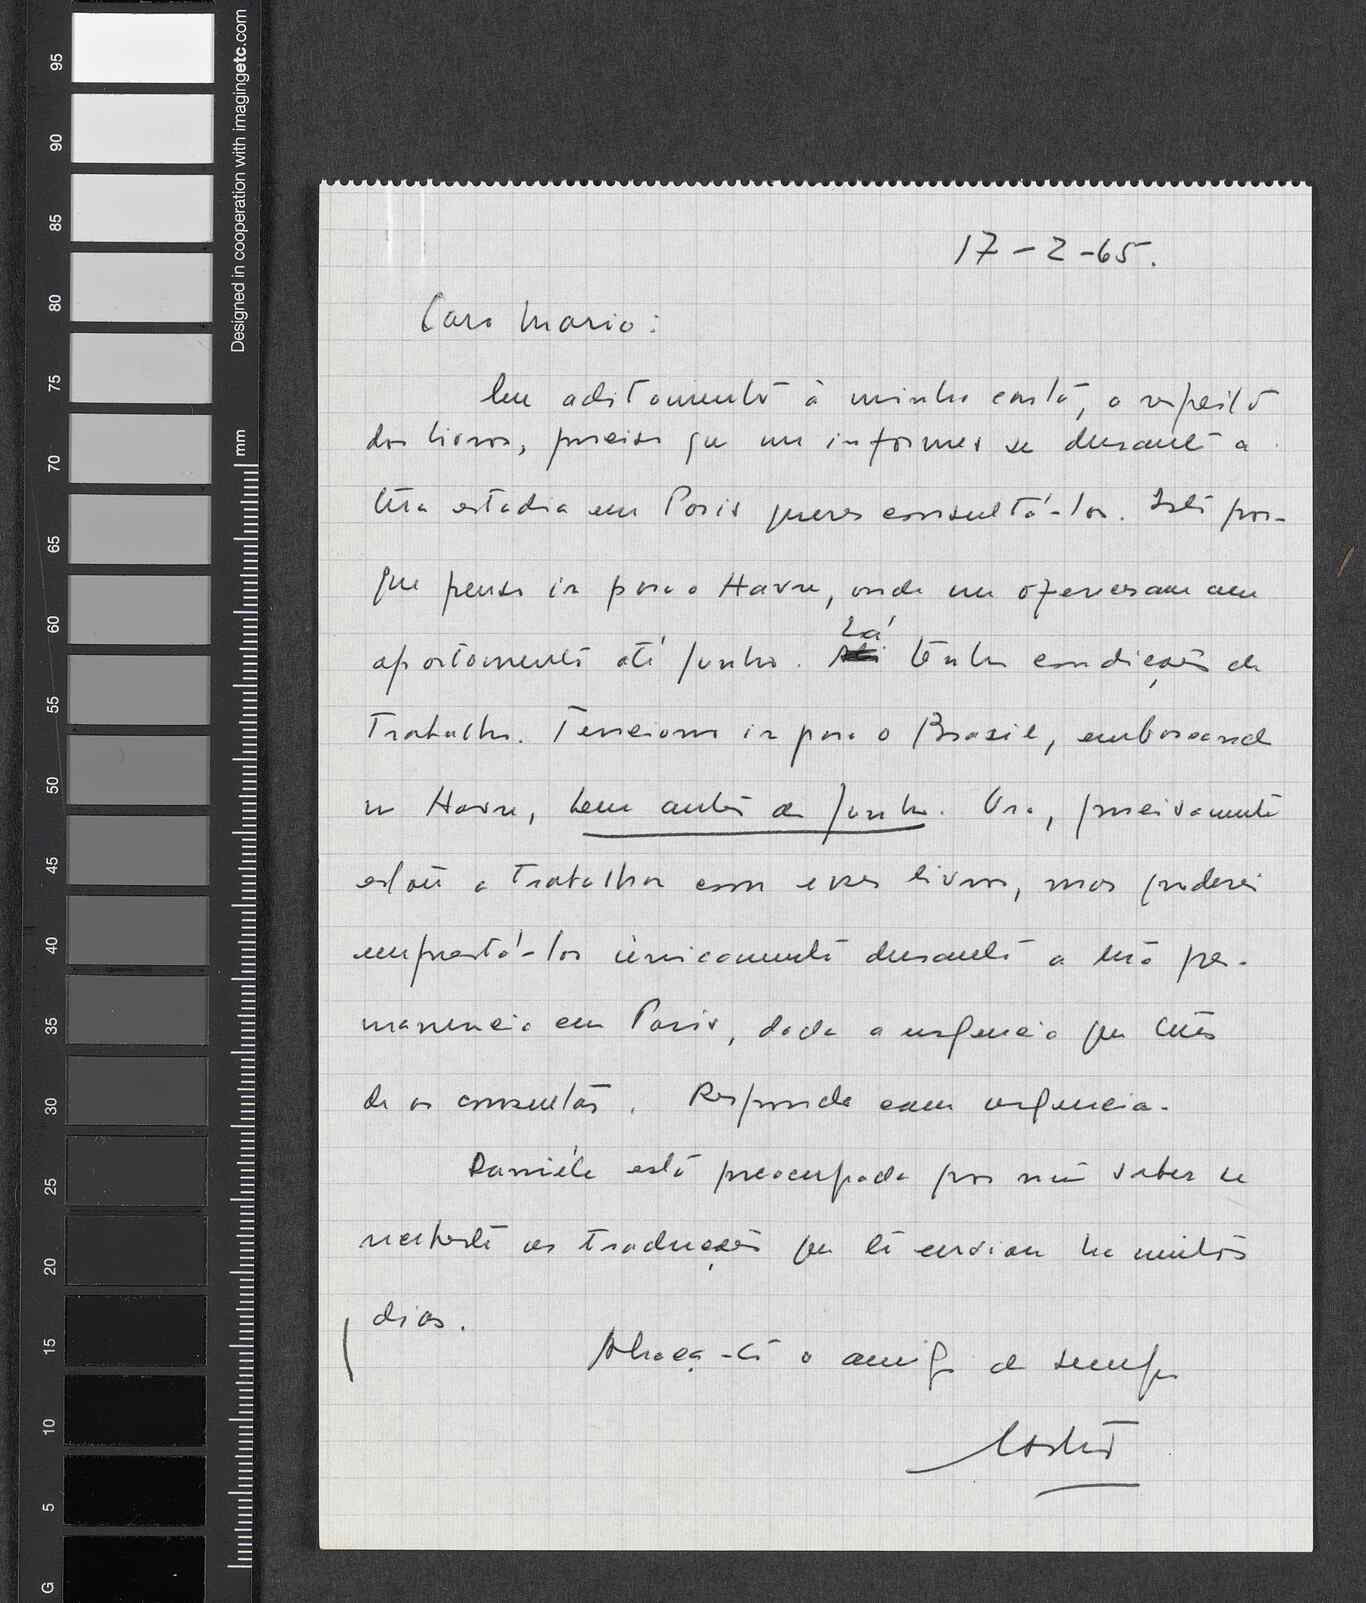 17-2-65.
Caro Mario:
Em aditamento à minha carta, a respeito
dos livros, preciso que me informes se durante a
tua estadia em Paris queres consultá-los. Isto por-
que penso ir para o Havre, onde me ofereceram um
apartamento até junho. Lá tenho condições de
trabalho. Tenciono ir para o Brasil, embarcando
no Havre, bem antes de junho. Ora, precisamente
estou a trabalhar com esses livros, mas poderei
emprestá-los únicamente durante a tua per-
manencia em Paris, dada a urgencia que tens
de os consultar. Responde com urgencia.
Danièle está preocupada por não saber se
recebeste as traduções que te enviou ha muitos
dias.
Abraça-te o amigo de sempre
Castro
95
90
85
80
75
70
65
60
55
50
45
40
35
30
25
20
15
10
5
G
mm
Designed in cooperation with imagingetc.com